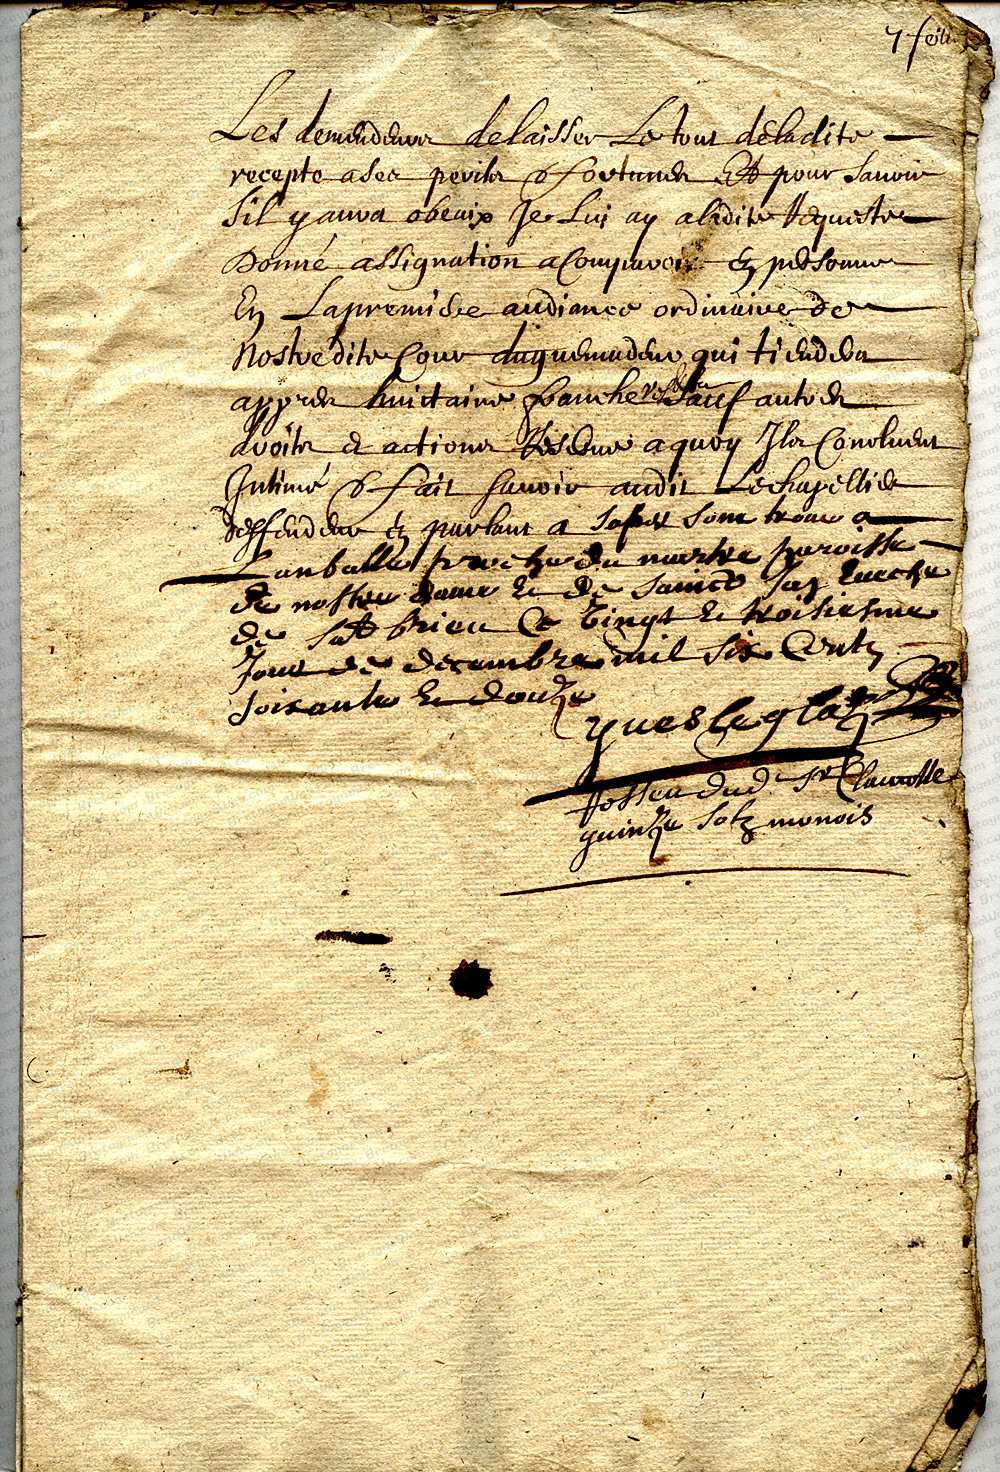 7 f
Les demendeurs delaisser Le tour deladite
recepte a ses perils & fortunes Et pour savoir
Sil y aura obeair Je Luy ay aladite Requeste
Donné assignation a Comparoir En personne
En Lapremiere audiance ordinaire de
Nostredite Cour qui tiendera
appres huictaine franche Sauf autres
droits et actions Reserve a quoy Ils Concluent
Intimé & fait savoir audit Lechapellier
deffendeur En parlant a sa personne trouvé a
Lanballe proche du martre paroisse
de nostre dame et de sainct Jan Evesche
de St brieu Ce Vingt et troisiesme
Jour de decembre mil six Centz
soixante et douze
yves Legla
quinze solz monois